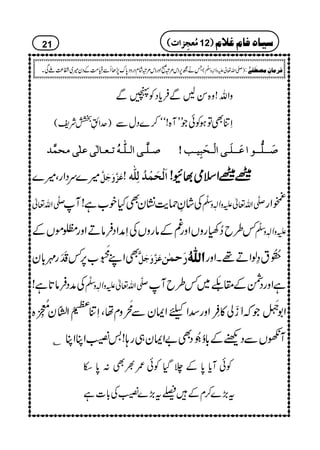 سیاہ فام غلام (12 مُعجِزات) 21
فرمانِ مصطَفٰے صلی اللہ تعالٰی علیہ والہٖ وسلم: جس نے مجھ پر دس مرتبہ صبح اور دس مرتبہ شام درود پاک پڑھا اُسے قیامت کے دن میری شفاعت ملے گی۔
واللہ! وہ سُن لیں گے فریاد کو پہنچیں گے
اِتنا بھی تو ہو کوئی جو ”آہ!“ کرے دل سے (حدائقِ بخشش شریف)
صَلُّوا عَلَی الْحَبِیب! صلَّی اللّٰہُ تعالٰی علٰی محمَّد
میٹھے میٹھے اسلامی بھائیو! اَلْحَمْدُ لِلّٰہِ عَزَّوَجَلَّ! میرے سردار، میرے
غمخوار صلَّی اللہ تعالٰی علیہ والہٖ وسلَّم کی شانِ حمایت نشان بھی کیا خوب ہے! آپ صلَّی اللہ تعالٰی
علیہ والہٖ وسلَّم کس طرح دُکھیاروں اور غم کے ماروں کی اِمداد فرماتے اور مظلوموں کے
حُقُوق دِلواتے تھے۔ اور اللہُ رحمٰن عَزَّوَجَلَّ بھی اپنے محبوب پر کس قَدَر مہربان
ہے اور دُشمن کے مقابلے میں کس طرح آپ صلَّی اللہ تعالٰی علیہ والہٖ وسلَّم کی مدد فرماتا ہے!
ابو جَہل جو کہ اَزَلی کافِر اور سدا کیلئے ایمان سے محروم تھا، اِتنا عظیم الشّان مُعجِزہ
آنکھوں سے دیکھنے کے باوُجُود بھی بے ایمان ہی رہا! بس نصیب اپنا اپنا ؎
کوئی آیا پا کے چلا گیا کوئی عمر بھر بھی نہ پا سکا
یہ بڑے کرم کے ہیں فیصلے یہ بڑے نصیب کی بات ہے